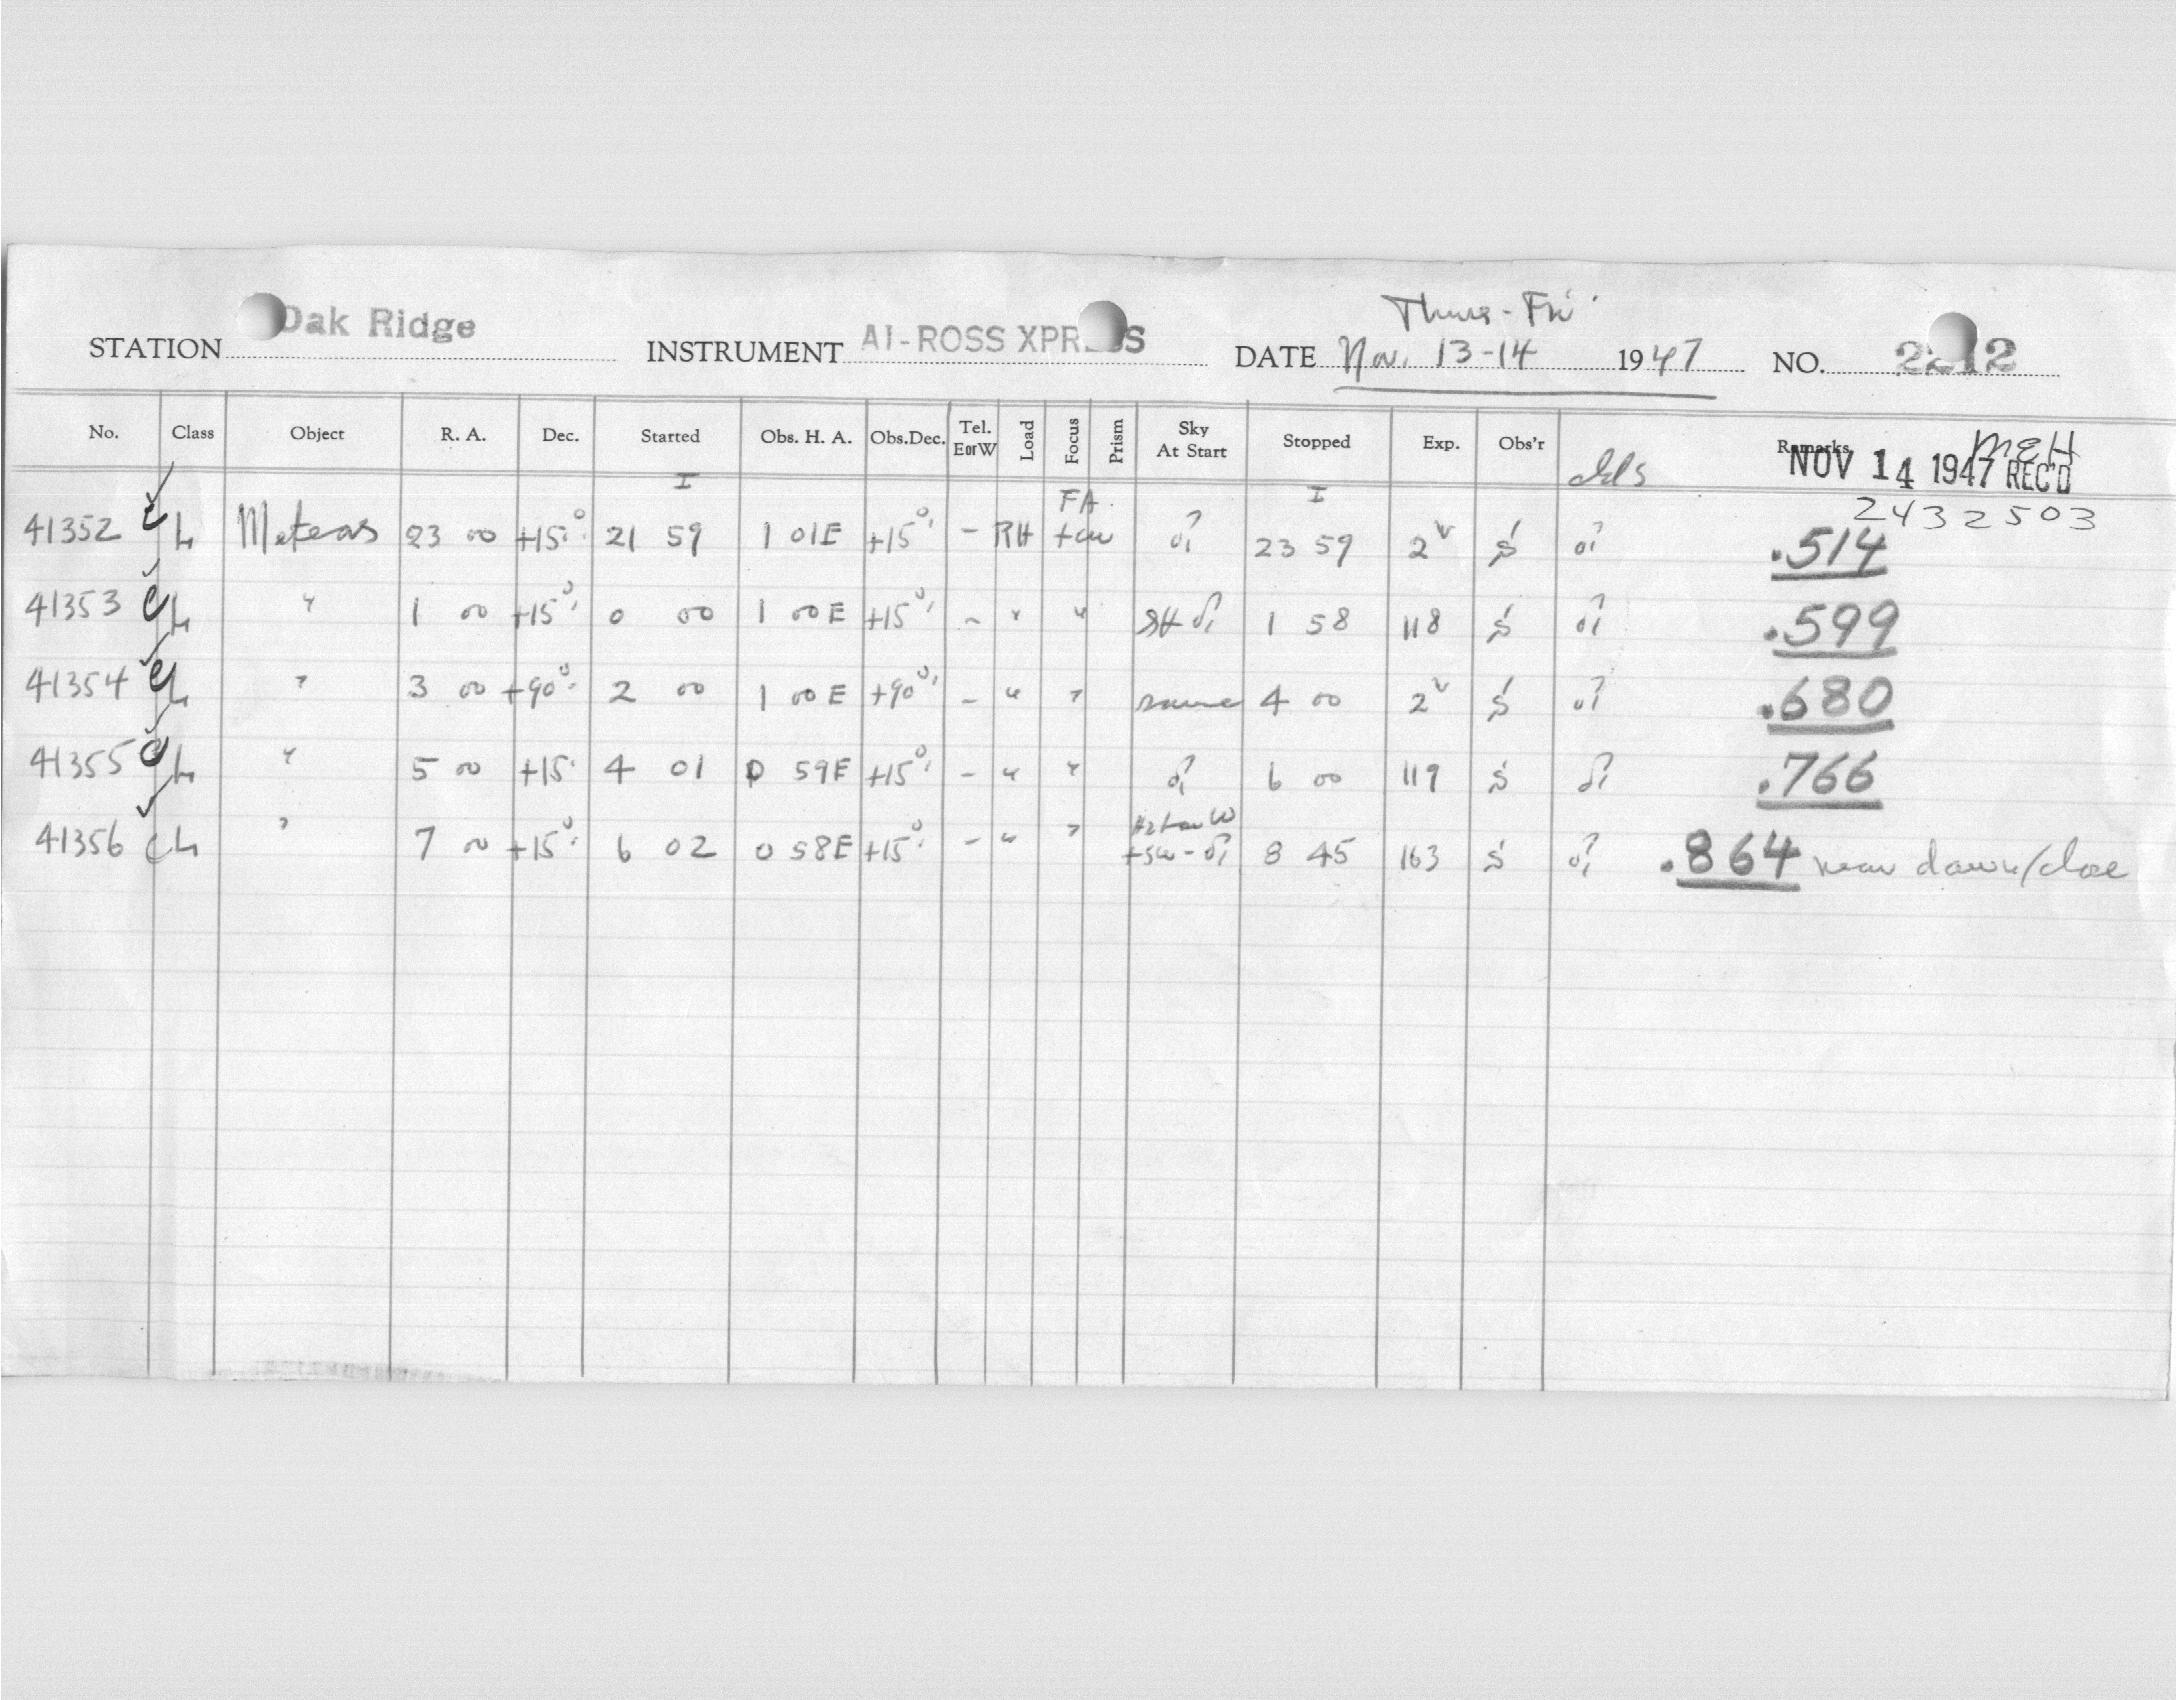 Thurs - Fri
STATION Oak Ridge INSTRUMENT AI-ROSS XPR S DATE Nov. 13-14 1947 NO. 2212
No. Class Object R. A. Dec. Started Obs. H. A. Obs.Dec. Tel. EorW Load Focus Prism Sky At Start Stopped Exp. Obs'r Remarks
MEH
NOV 14 1947 REC'D
I I 2432503
41352 Meteors 23 00 +15° 21 59 1 01E +15° - RH FA 23 59 2 .514
41353 " 1 00 +15° 0 00 1 00E +15° - " " 1 58 118 .599
41354 " 3 00 +90° 2 00 1 00E +90° - " " same 4 00 2 .680
41355 " 5 00 +15 4 01 0 59E +15° - " " 6 00 119 .766
41356 " 7 00 +15° 6 02 0 58E +15° - " " 8 45 163 .864 near dawn/